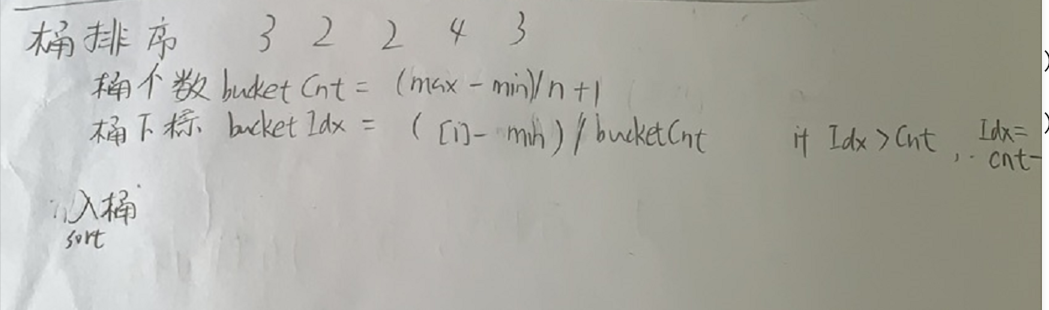 桶排序 3 2 2 4 3
桶个数 bucketCnt = (max - min)/n+1
桶下标 bucketIdx = ([i] - min) / bucketCnt if Idx > Cnt , Idx =
cnt-
入桶
sort